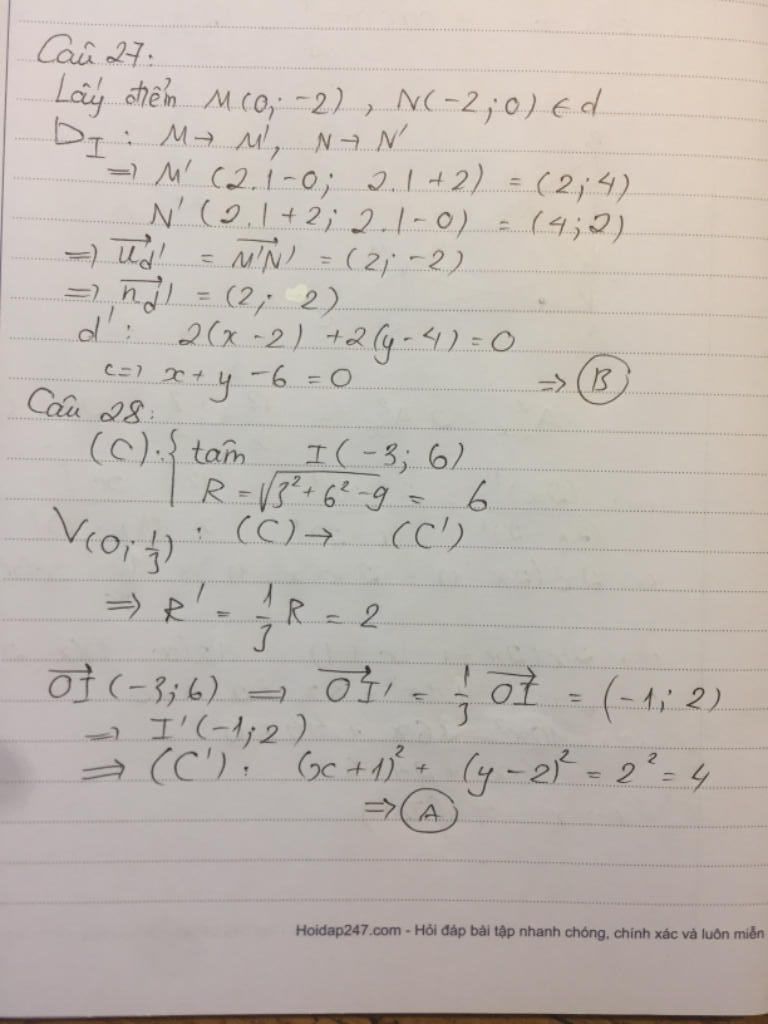 Câu 27:
Lấy điểm M(0; -2), N(-2; 0) ∈ d
Đ_I : M → M', N → N'
=> M' (2.1-0; 2.1+2) = (2; 4)
N' (2.1+2; 2.1-0) = (4; 2)
=> \vec{u_{d'}} = \vec{M'N'} = (2; -2)
=> \vec{n_{d'}} = (2; 2)
d': 2(x-2) + 2(y-4) = 0
<=> x + y - 6 = 0 => B
Câu 28:
(C): { tâm I(-3; 6)
R = √(3²+6²-9) = 6
V(O; 1/3) : (C) → (C')
=> R' = 1/3 R = 2
\vec{OI} (-3; 6) => \vec{OI'} = 1/3 \vec{OI} = (-1; 2)
=> I'(-1; 2)
=> (C'): (x+1)² + (y-2)² = 2² = 4
=> A
Hoidap247.com - Hỏi đáp bài tập nhanh chóng, chính xác và luôn miễn